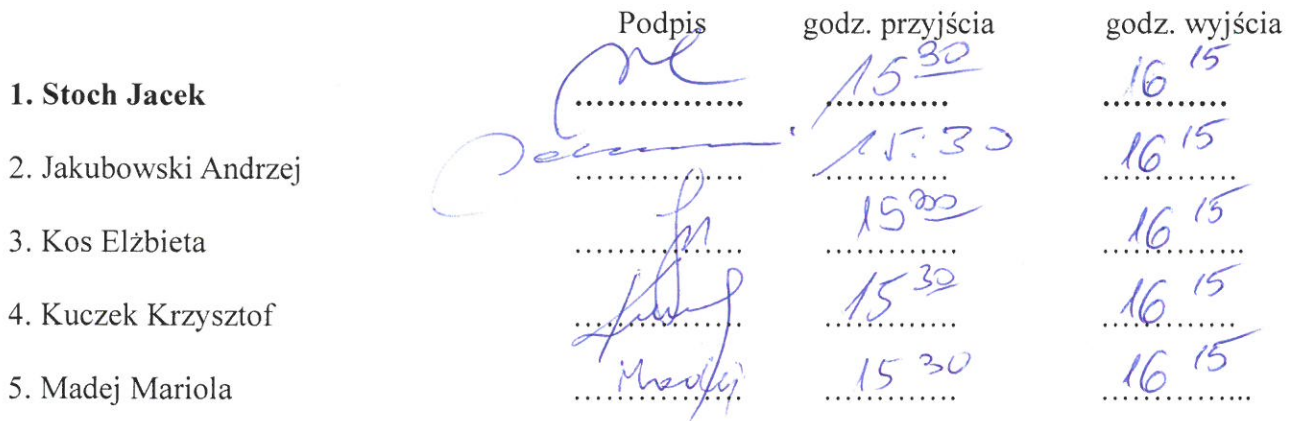 Podpis godz. przyjścia godz. wyjścia
1. Stoch Jacek 15 30 16 15
2. Jakubowski Andrzej 15:30 16 15
3. Kos Elżbieta 15 30 16 15
4. Kuczek Krzysztof 15 30 16 15
5. Madej Mariola Madej 15 30 16 15